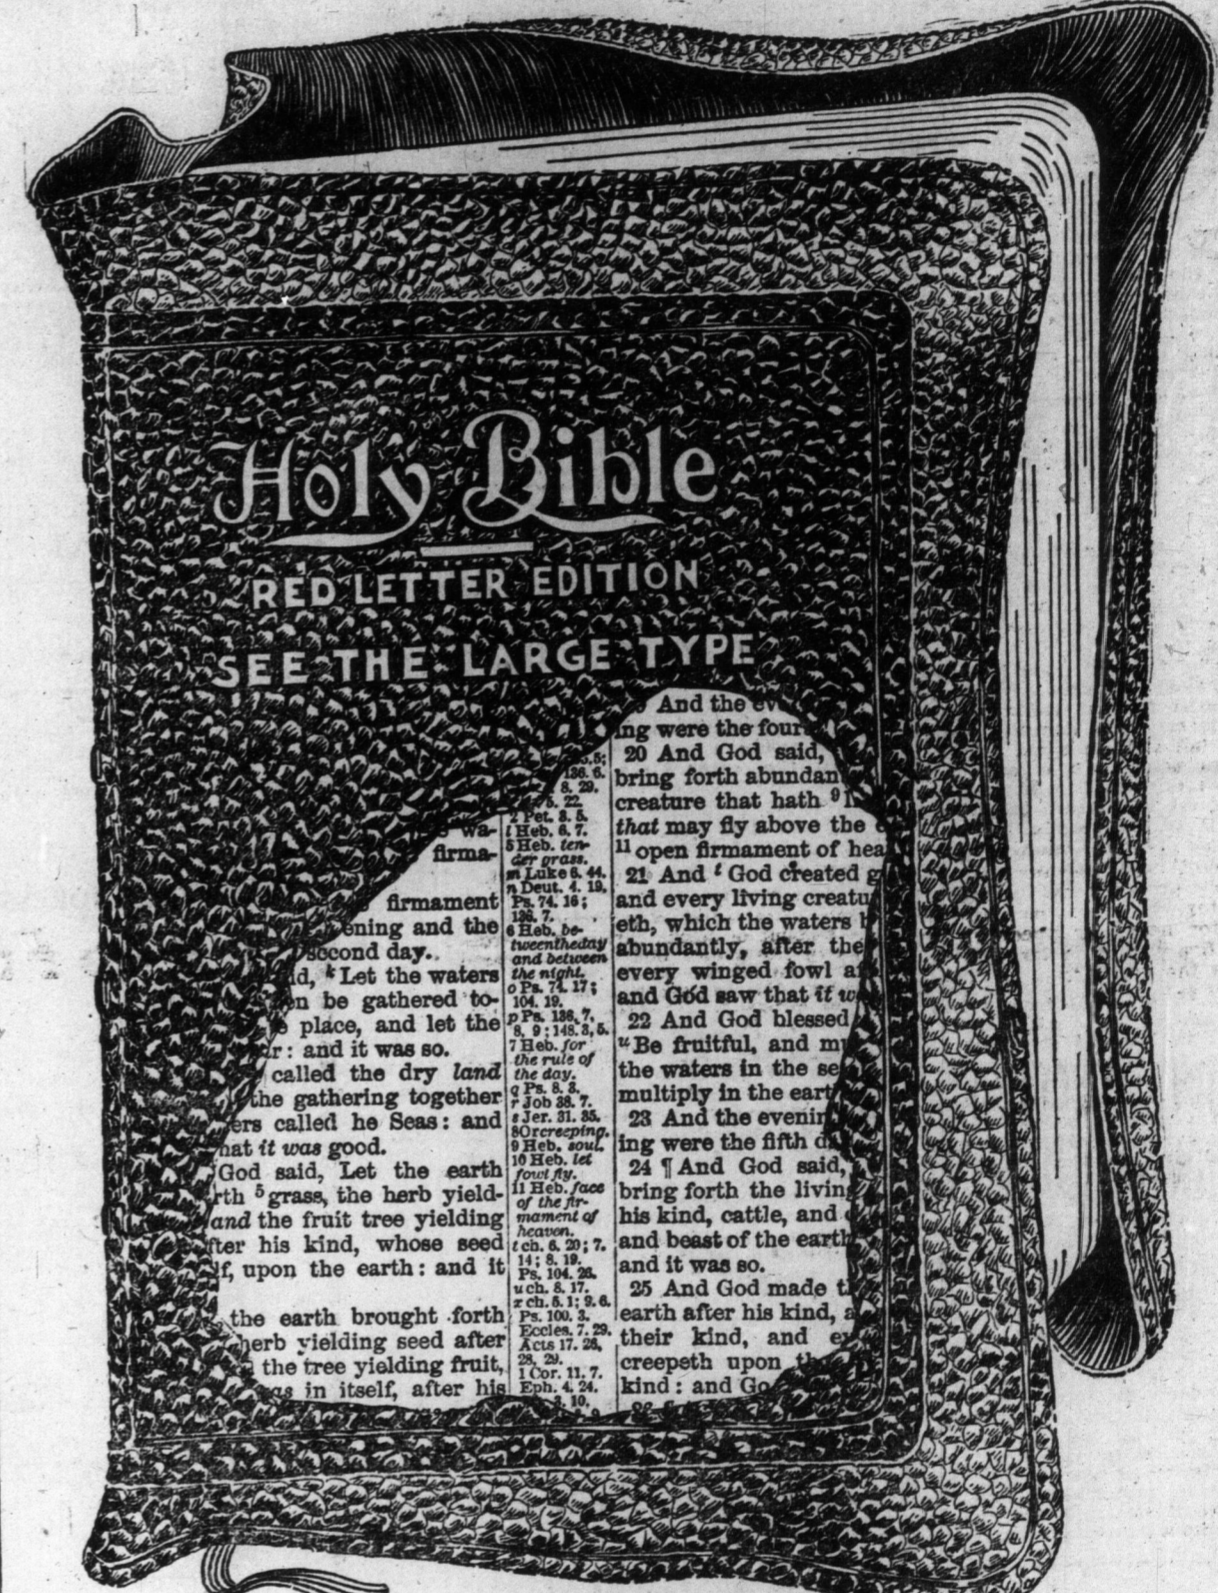 Holy Bible
RED LETTER EDITION
SEE THE LARGE TYPE
firma-
firmament
and the
second day.
k Let the waters
be gathered to-
place, and let the
: and it was so.
called the dry land
the gathering together
called he Seas: and
it was good.
God said, Let the earth
5 grass, the herb yield-
and the fruit tree yielding
his kind, whose seed
upon the earth: and it
the earth brought forth
herb yielding seed after
the tree yielding fruit,
in itself, after his
136. 6.
8. 29.
22.
2 Pet. 3. 5.
l Heb. 6. 7.
5 Heb. ten-
der grass.
m Luke 6. 44.
n Deut. 4. 19.
Ps. 74. 16;
136. 7.
6 Heb. be-
tween the day
and between
the night.
o Ps. 74. 17;
104. 19.
p Ps. 136. 7,
8, 9; 148. 3, 5.
7 Heb. for
the rule of
the day.
q Ps. 8. 3.
r Job 38. 7.
s Jer. 31. 35.
8 Or creeping.
9 Heb. soul.
10 Heb. let
fowl fly.
11 Heb. face
of the fir-
mament of
heaven.
t ch. 6. 20; 7.
14; 8. 19.
Ps. 104. 26.
u ch. 8. 17.
x ch. 5. 1; 9. 6.
Ps. 100. 3.
Eccles. 7. 29.
Acts 17. 26,
28, 29.
1 Cor. 11. 7.
Eph. 4. 24.
10.
And the
ing were the
20 And God said,
bring forth
creature that hath 9
that may fly above the
11 open firmament of
21 And t God created
and every living
eth, which the waters
abundantly, after
every winged fowl
and God saw that it
22 And God blessed
u Be fruitful, and
the waters in the
multiply in the
23 And the
ing were the fifth
24 ¶ And God said,
bring forth the
his kind, cattle, and
and beast of the
and it was so.
25 And God made
earth after his kind,
their kind, and
creepeth upon
kind: and